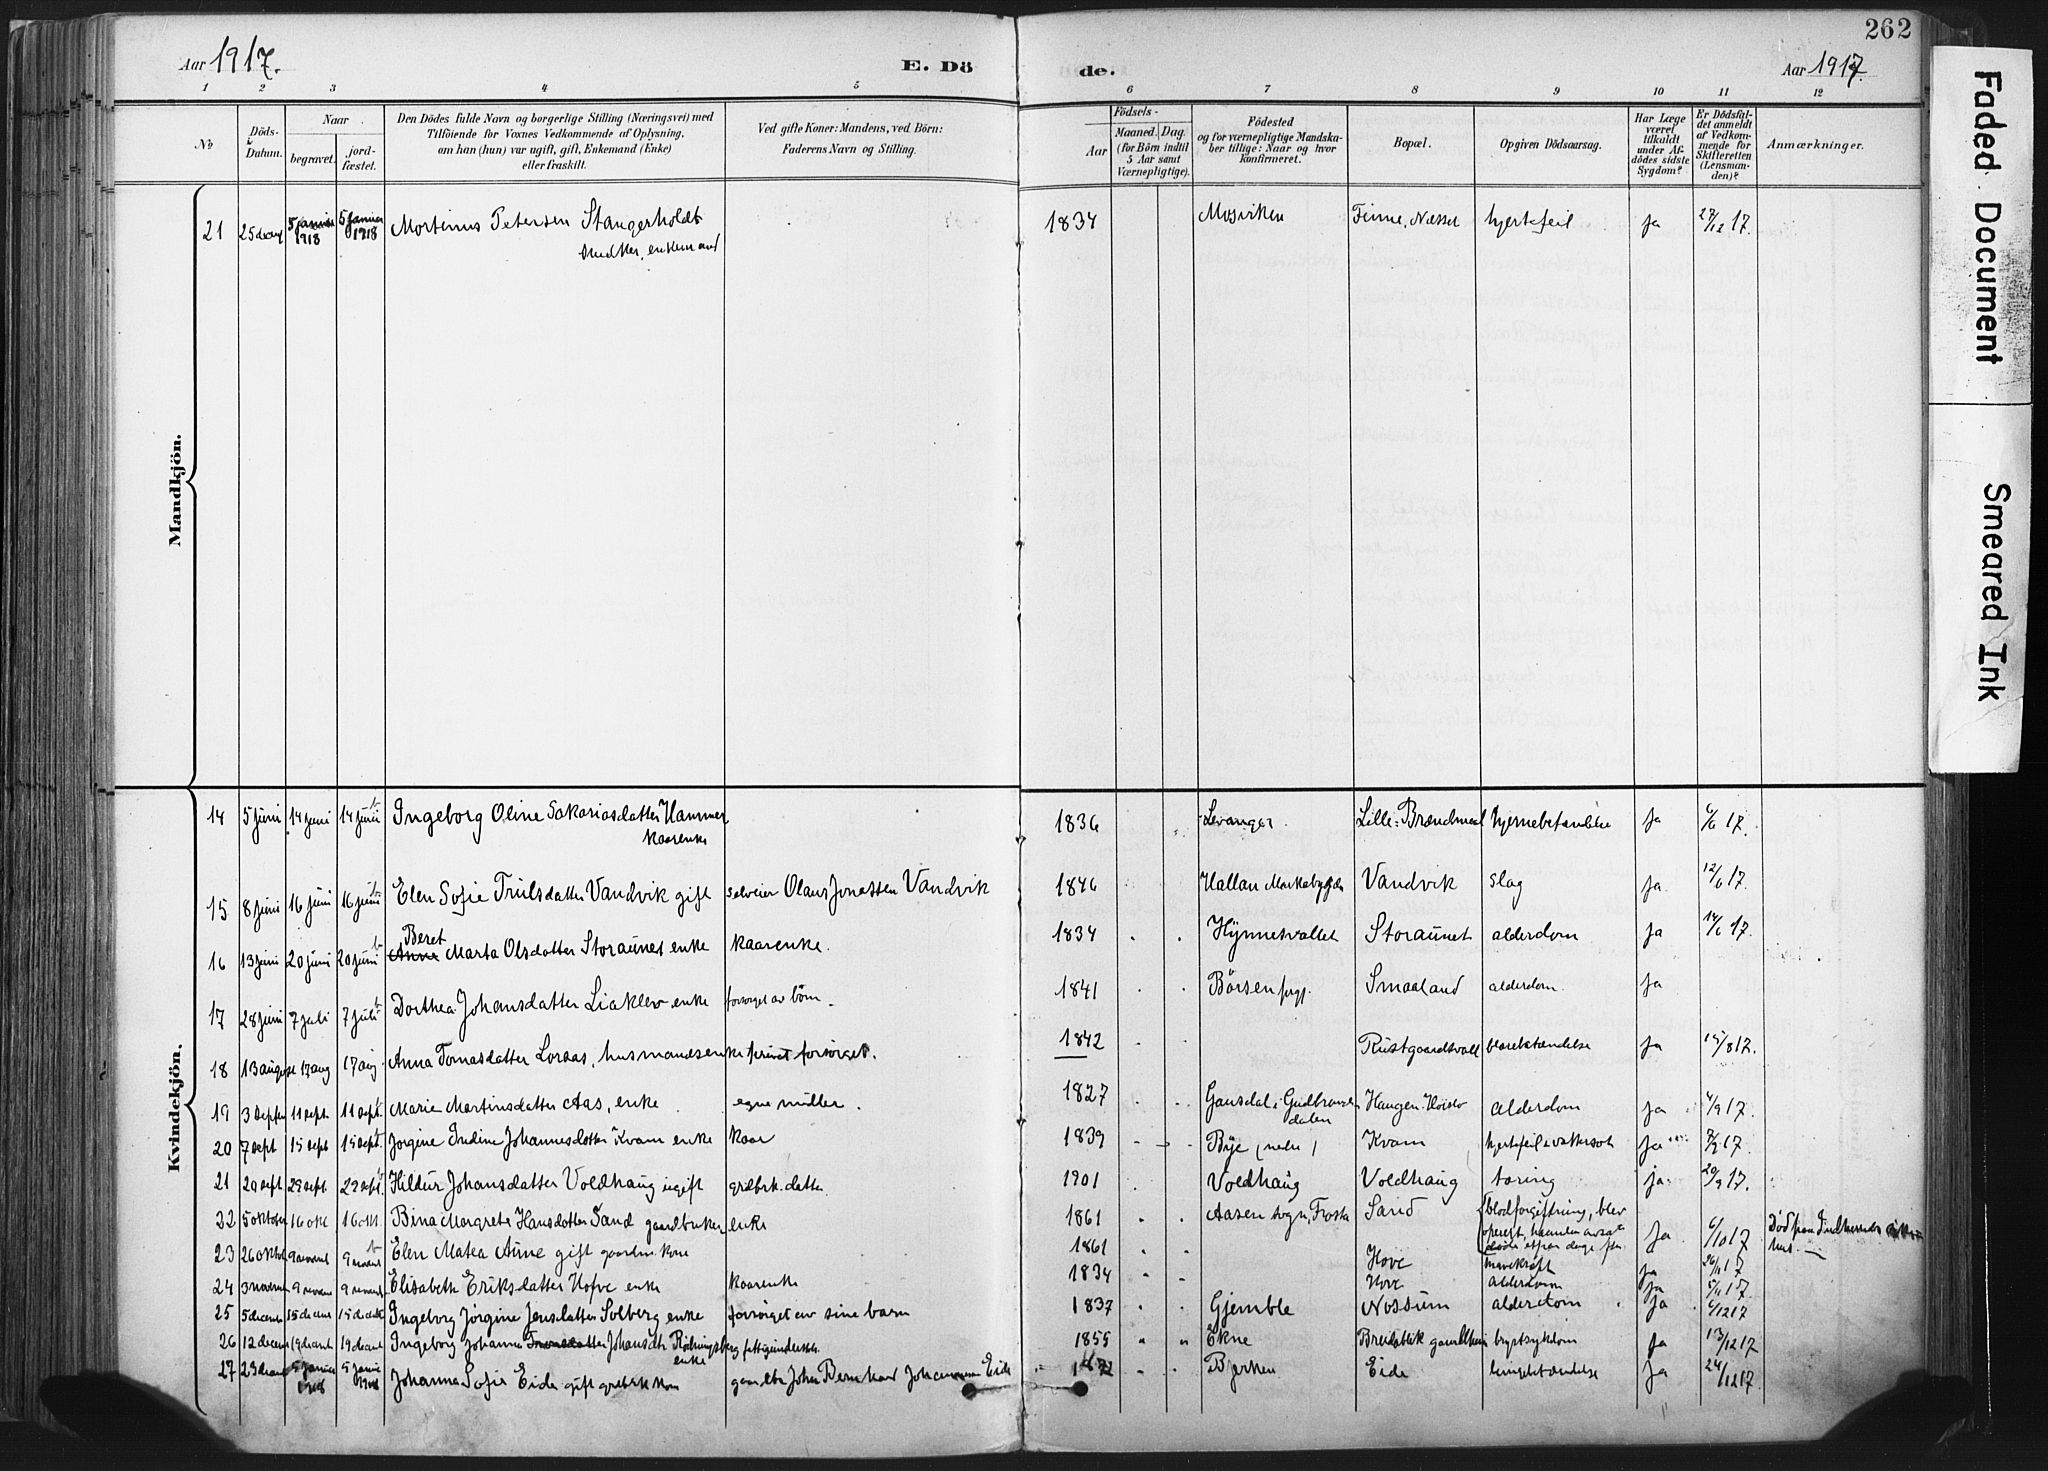 262
Aar 1917.
E. Dö
de.
Aar 1917.
1 2 3 4 5 6 7 8 9 10 11 12
No
Döds-Datum.
Naar
begravet.
jordfæstet.
Den Dödes fulde Navn og borgerlige Stilling (Næringsvei) med
Tilföiende for Voxnes Vedkommende af Oplysning,
om han (hun) var ugift, gift, Enkemand (Enke)
eller fraskilt.
Ved gifte Koner: Mandens, ved Börn:
Faderens Navn og Stilling.
Födsels-
Aar
Maaned. Dag.
(for Börn indtil
5 Aar samt
Værnepligtige).
Födested
og for værnepligtige Mandska-
ber tillige: Naar og hvor
konfirmeret.
Bopæl.
Opgiven Dödsaarsag.
Har Læge
været
tilkaldt
under Af-
dödes sidste
Sygdom?
Er Dödsfal-
det anmeldt
af Vedkom-
mende for
Skifteretten
(Lensman-
den)?
Anmærkninger.
Mandkjön.
21 25 5 januar 1918 5 januar 1918 Mortinus Petersen Stangerholdt enkemand 1834 Mosviken Finne, Næsset hjertefeil ja 27/12 17.
Kvindekjön.
14 5 juni 14 juni 14 juni Ingeborg Oline Sakariasdatter Hammer kaarenke 1836 Levanger Lille-Brændmoel hjernebetændelse ja 6/6 17.
15 8 juni 16 juni 16 juni Elen Sofie Trulsdatter Vandvik gift selveier Olaus Jonassen Vandvik 1846 Hallan Markabygden Vandvik slag ja 12/6 17.
16 13 juni 20 juni 20 juni Beret Anna Marta Olsdatter Storaunet enke kaarenke. 1834 Hynnesvallet Storaunet alderdom ja 14/6 17.
17 28 juni 7 juli 7 juli Dorthea Johansdatter Liaklev enke forsørget av børn. 1841 Børsen Smaaland alderdom ja
18 13 august 17 aug 17 aug Anna Tomasdatter Loraas, husmandsenke privat forsørget. 1842 Rustgaardsvall blærebetændelse ja 15/8 17.
19 3 septem 11 sept. 11 sept. Marie Martinsdatter Aas, enke egne midler. 1827 Gausdal i Gudbrandsdalen Haugen Høislo alderdom ja 4/9 17.
20 7 sept 15 sept 15 sept. Jørgine Indine Johannesdatter Kvam enke kaar 1839 Bye (nedre) Kvam hjertefeil & vattersot ja 7/9 17.
21 20 sept 29 sept. 29 sept. Hildur Johansdatter Voldhaug ugift grdbrk. datter. 1901 Voldhaug Voldhaug tæring ja 20/9 17.
22 5 oktober 16 okt 16 okt. Bina Margrete Hansdatter Sand gaardbruker enke 1861 Aasen sogn, Frosta Sand blodforgiftning, blev operert, ja 6/10 17 Død paa Indherreds
23 26 oktob 9 novem 9 novem Elen Matea Aune gift gaardm. kone 1861 Hove mavekræft ja 26/11 17
24 3 novem 9 novem 9 novem Elisabeth Eriksdatter Hofve enke kaarenke 1834 Hove alderdom ja 5/11 17.
25 5 decemb 15 decem 15 decemb Ingeborg Jørgine Jensdatter Solberg enke forsørget av sine barn 1837 Gjemble Nossum alderdom ja 6/12 17
26 12 decem 19 decemb 19 decemb Ingeborg Johanna Johansdtr Rødningsberg enke fattigunderst. 1855 Ekne Breidablik brystsykdom ja 13/12 17
27 23 decemb 5 januar 1918 5 januar 1918 Johanna Sofie Eide gift grdbrk. kone John Bernhard Johannesen Eide 1872 Bjerken Eide lungebetændelse ja 24/12 17.
Faded Document
Smeared Ink